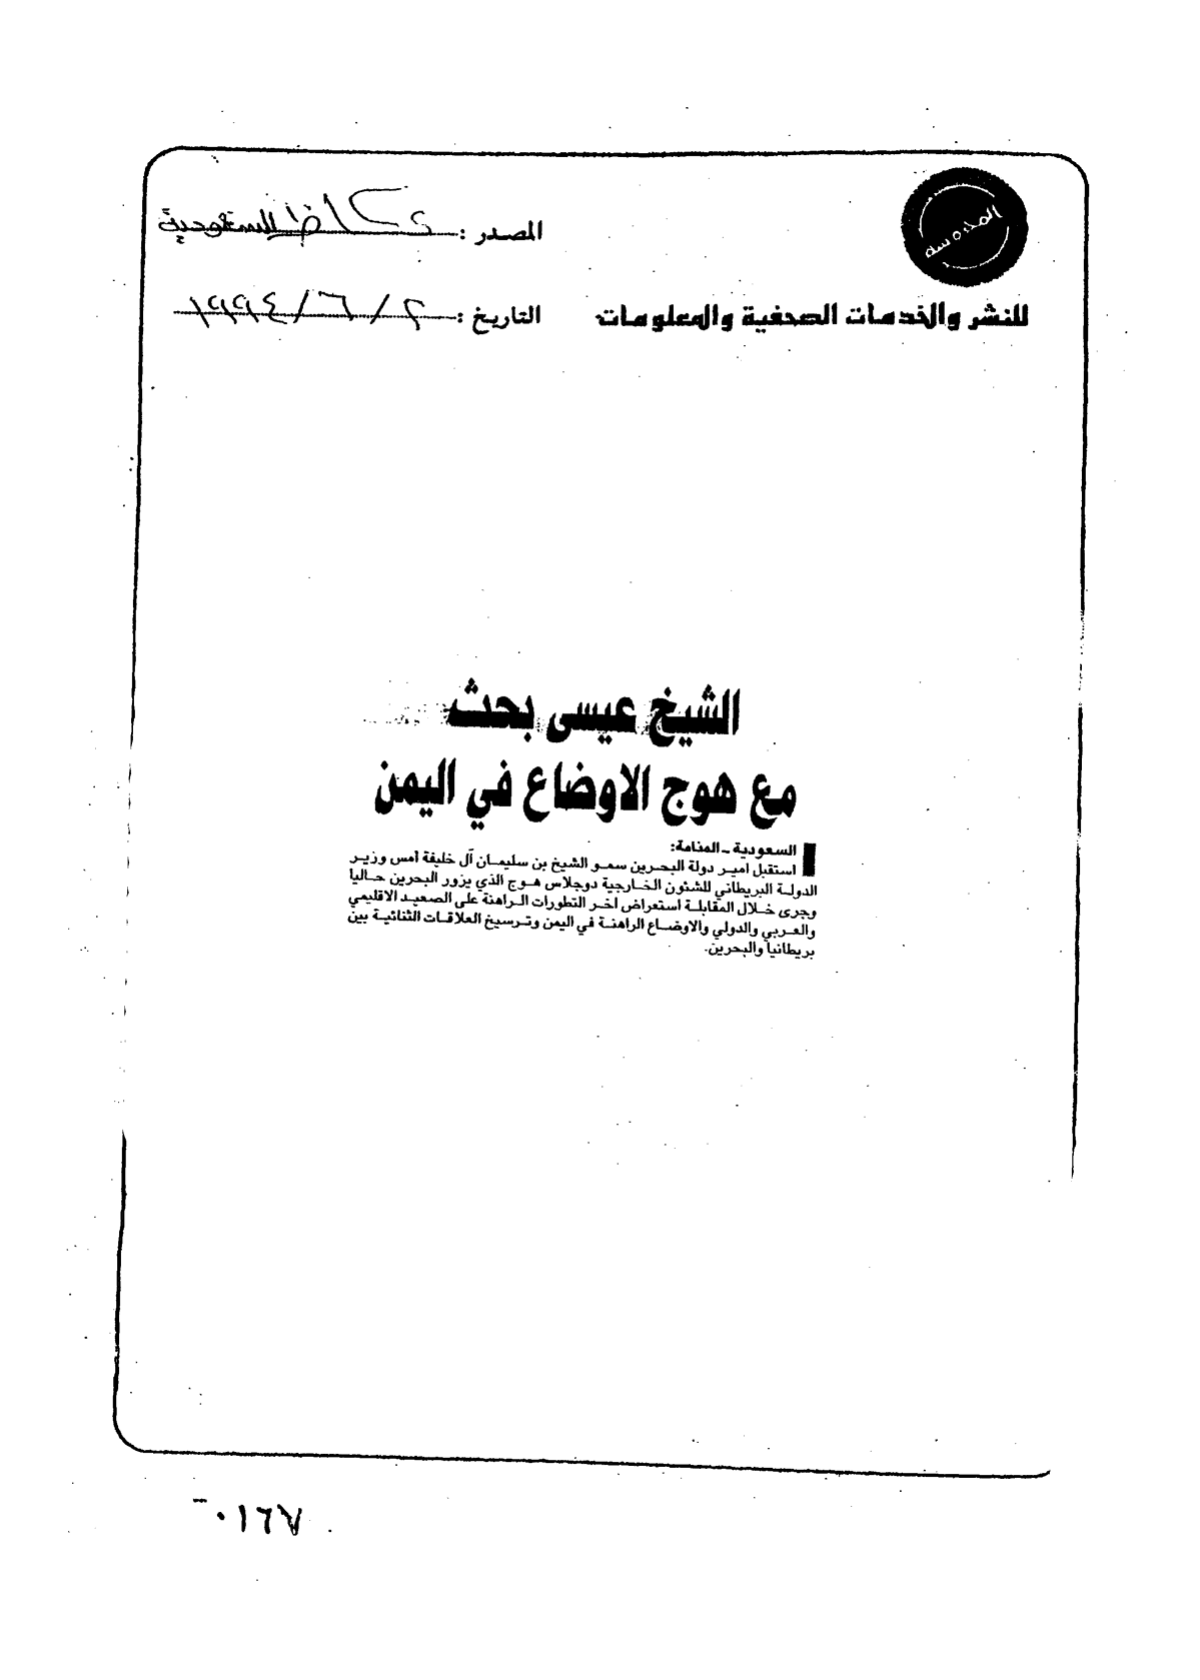 المحروسة
المصدر : عكاظ السعودية
للنشر والخدمات الصحفية والمعلومات
التاريخ : ٢ / ٦ / ١٩٩٤
الشيخ عيسى بحث
مع هوج الاوضاع في اليمن
السعودية ـ المنامة:
استقبل امير دولة البحرين سمو الشيخ بن سليمان آل خليفة أمس وزير
الدولة البريطاني للشئون الخارجية دوجلاس هوج الذي يزور البحرين حاليا
وجرى خلال المقابلة استعراض اخر التطورات الراهنة على الصعيد الاقليمي
والعربي والدولي والاوضاع الراهنة في اليمن وترسيخ العلاقات الثنائية بين
بريطانيا والبحرين.
٠١٦٧